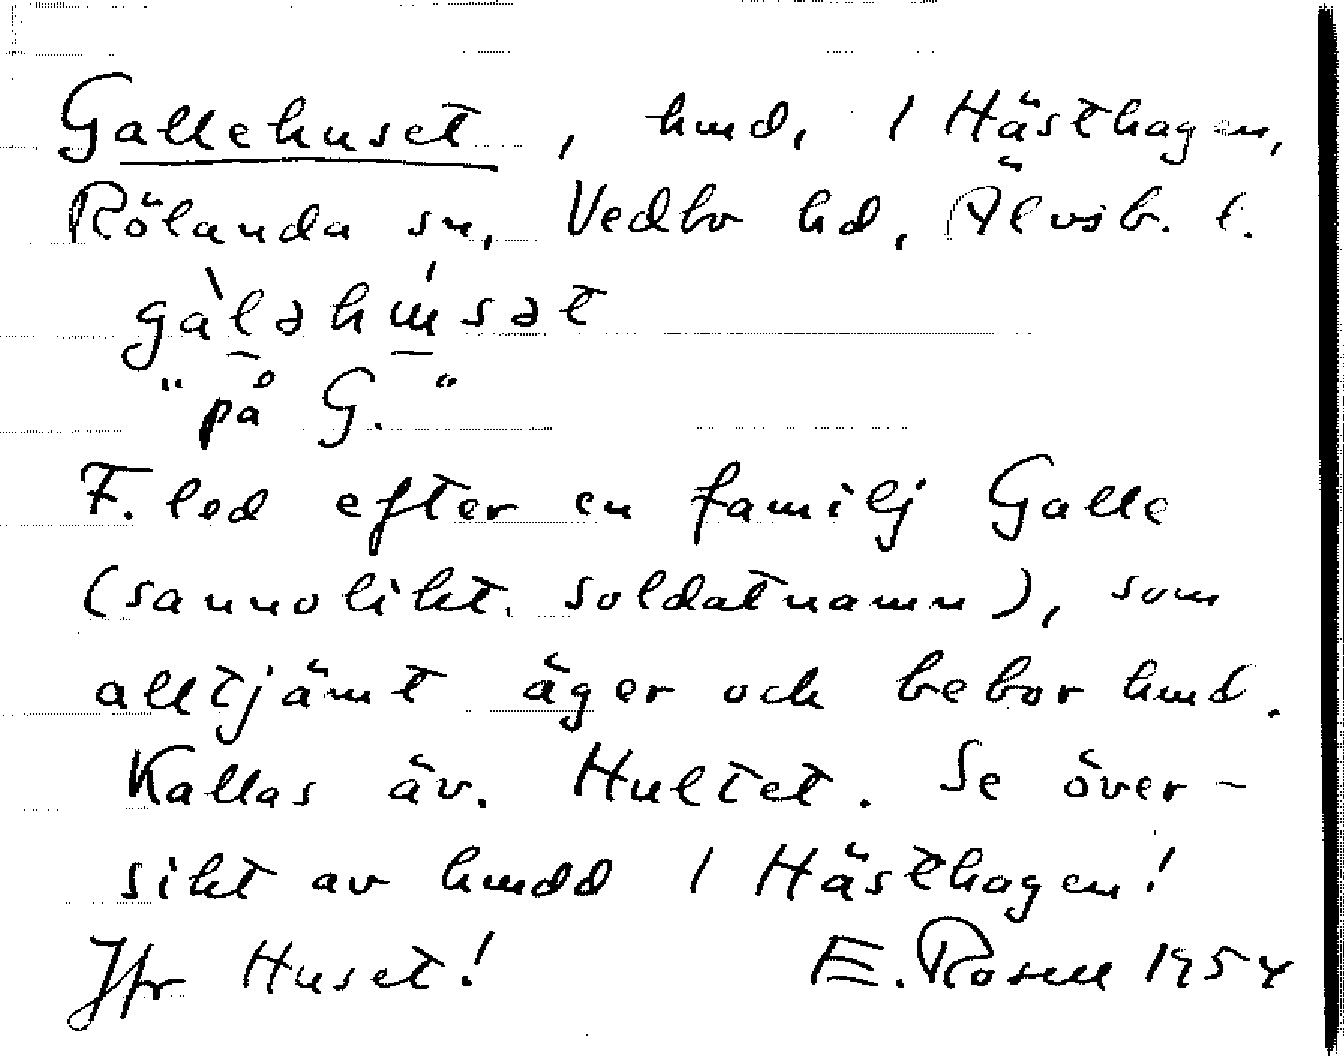 Gallehuset, hmd, 1 Hästhagen,
Rölanda sn, Vedbo hd, Älvsb. l.
gàləhúsət
"på G."
F. led efter en familj Galle
(sannolikt. soldatnamn), som
alltjämt äger och bebor hmd.
Kallas äv. Hultet. Se över-
sikt av hmdd 1 Hästhagen!
Jfr Huset! E. Rosell 1954